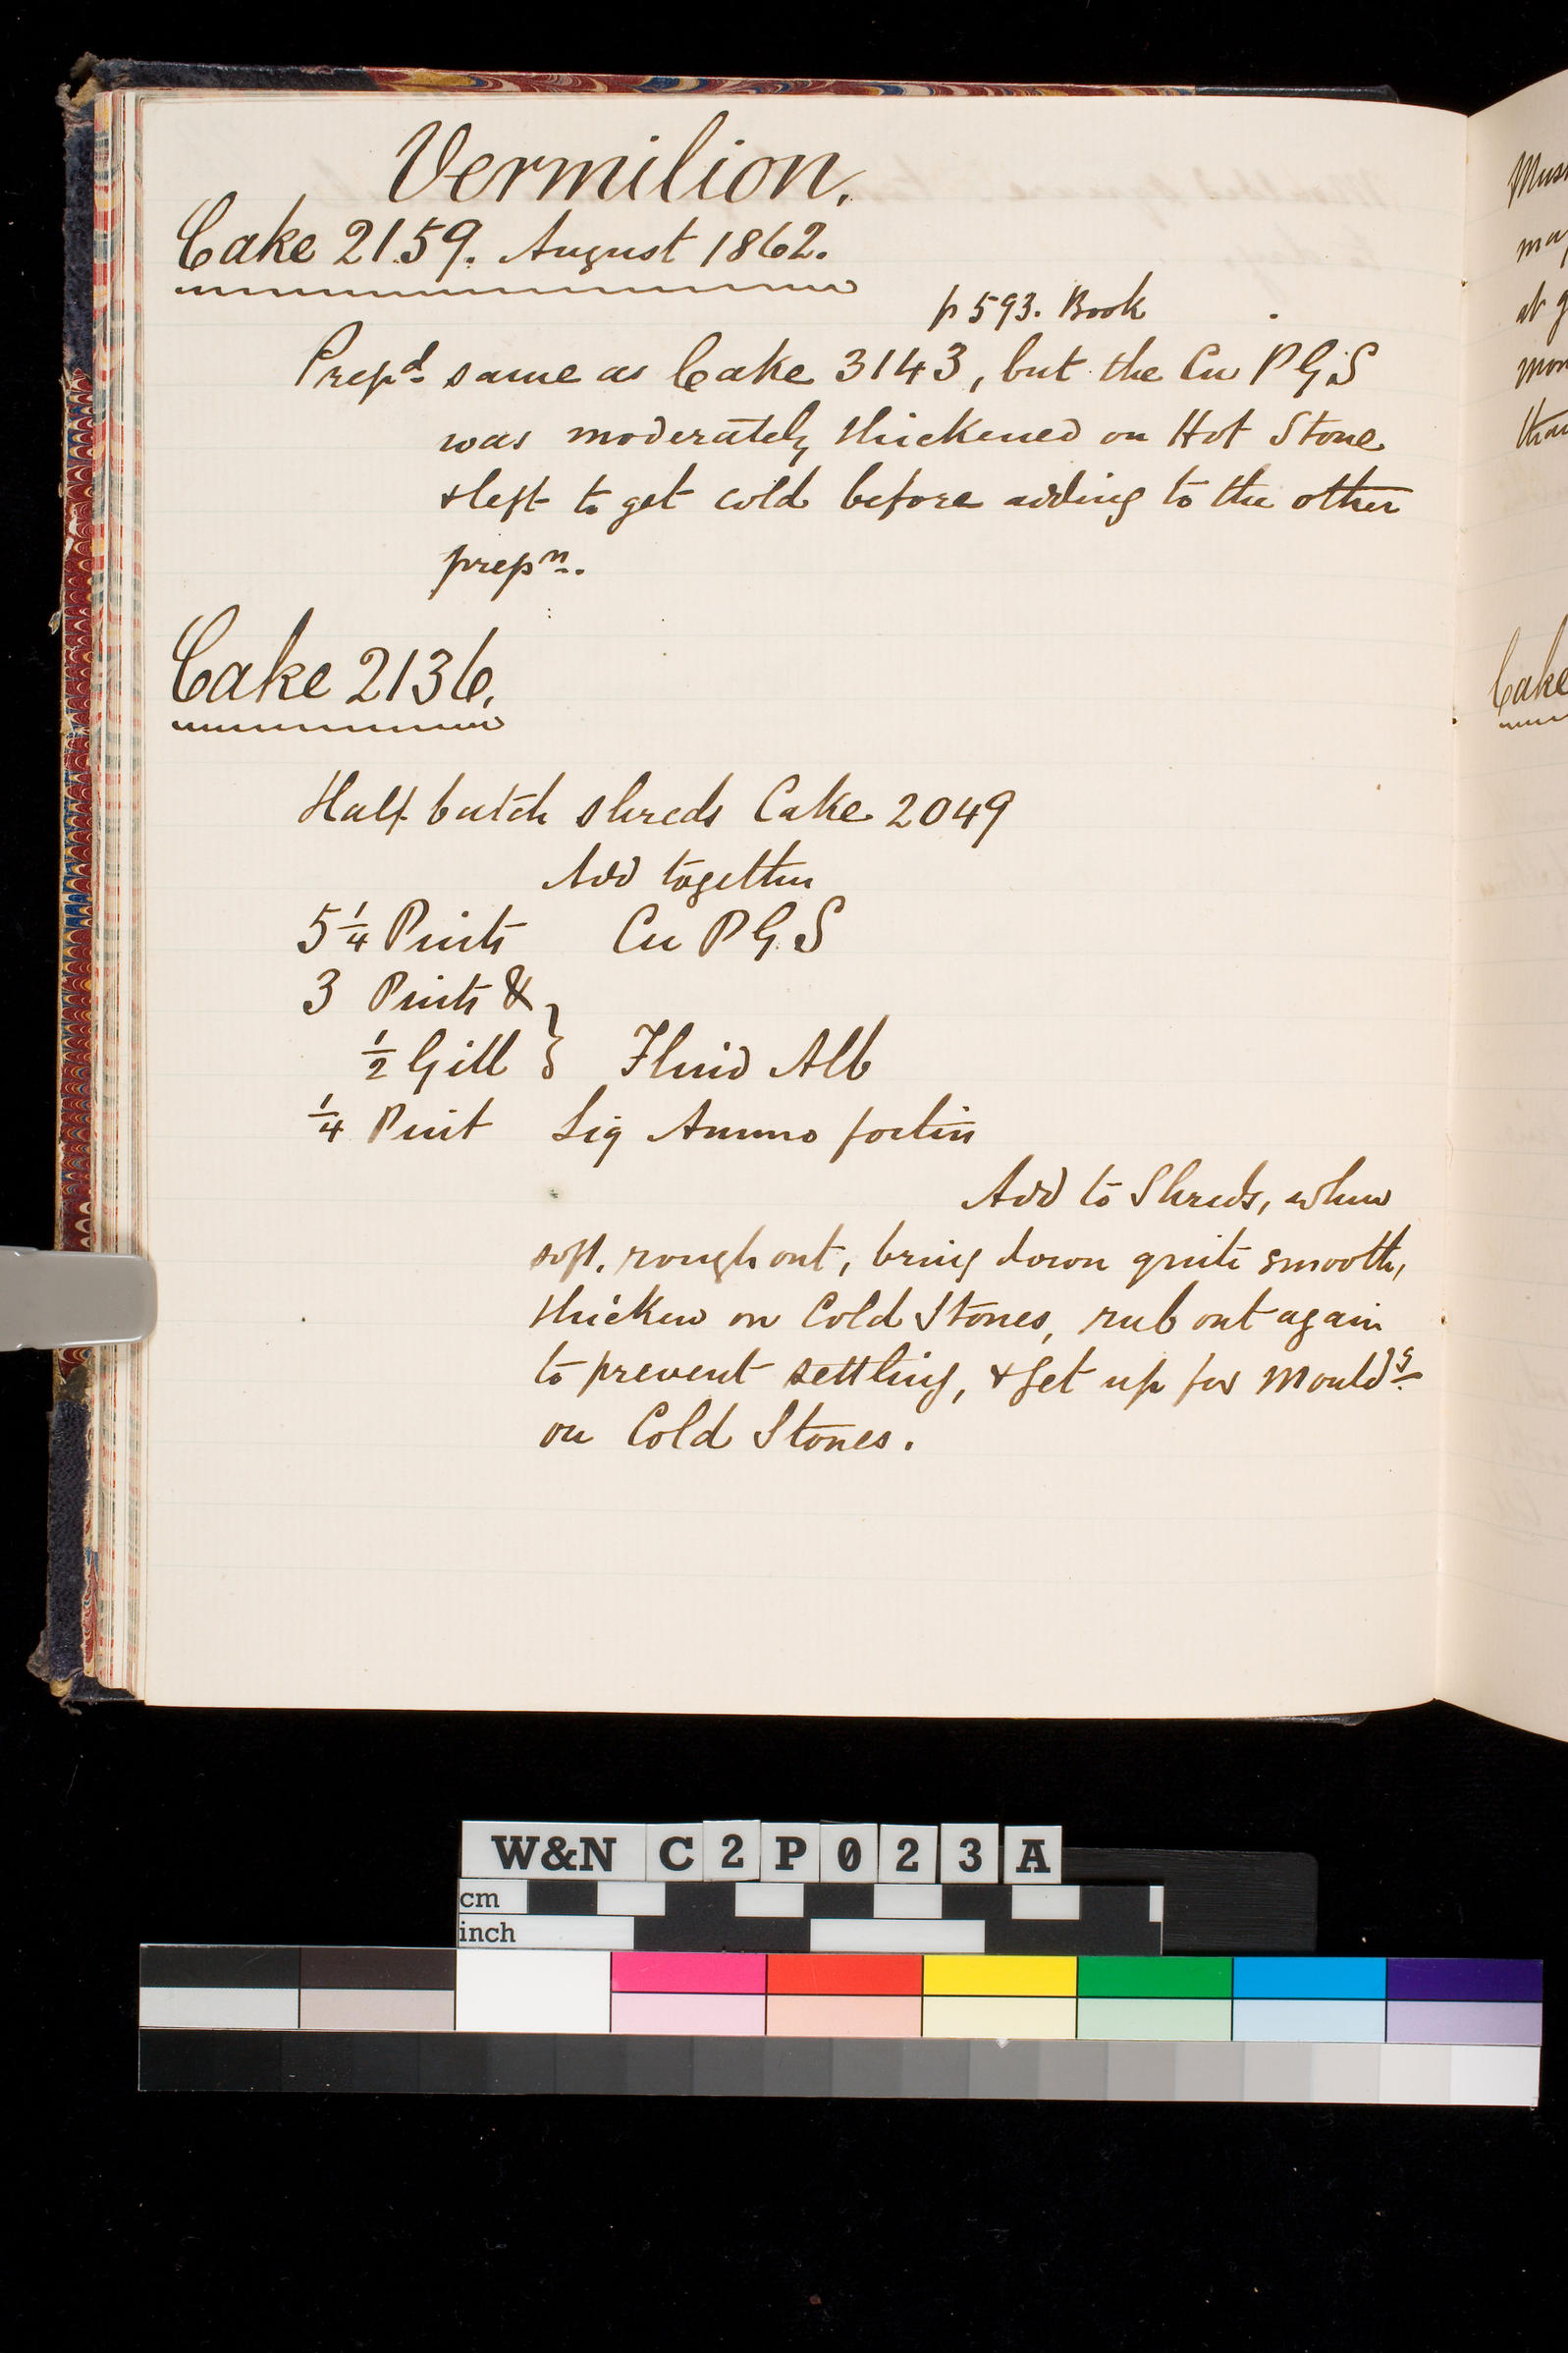 Vermilion.
Cake 2159. August 1862.
p 593. Book
Prepd same as Cake 3143, but the Cu P G S
was moderately thickened on Hot Stone
& left to get cold before adding to the other
prepn.
Cake 2136.
Half batch shreds Cake 2049
Add together
5 1/4 Pints Cu P G S
3 Pints &
1/2 Gill } Fluid Alb
1/4 Pint Liq Ammo fortis
Add to Shreds, when
soft. rough out, bring down quite smooth,
thicken on Cold Stones, rub out again
to prevent settling, & get up for Mouldg
on Cold Stones.
Cake
W&N C2P023A
cm
inch